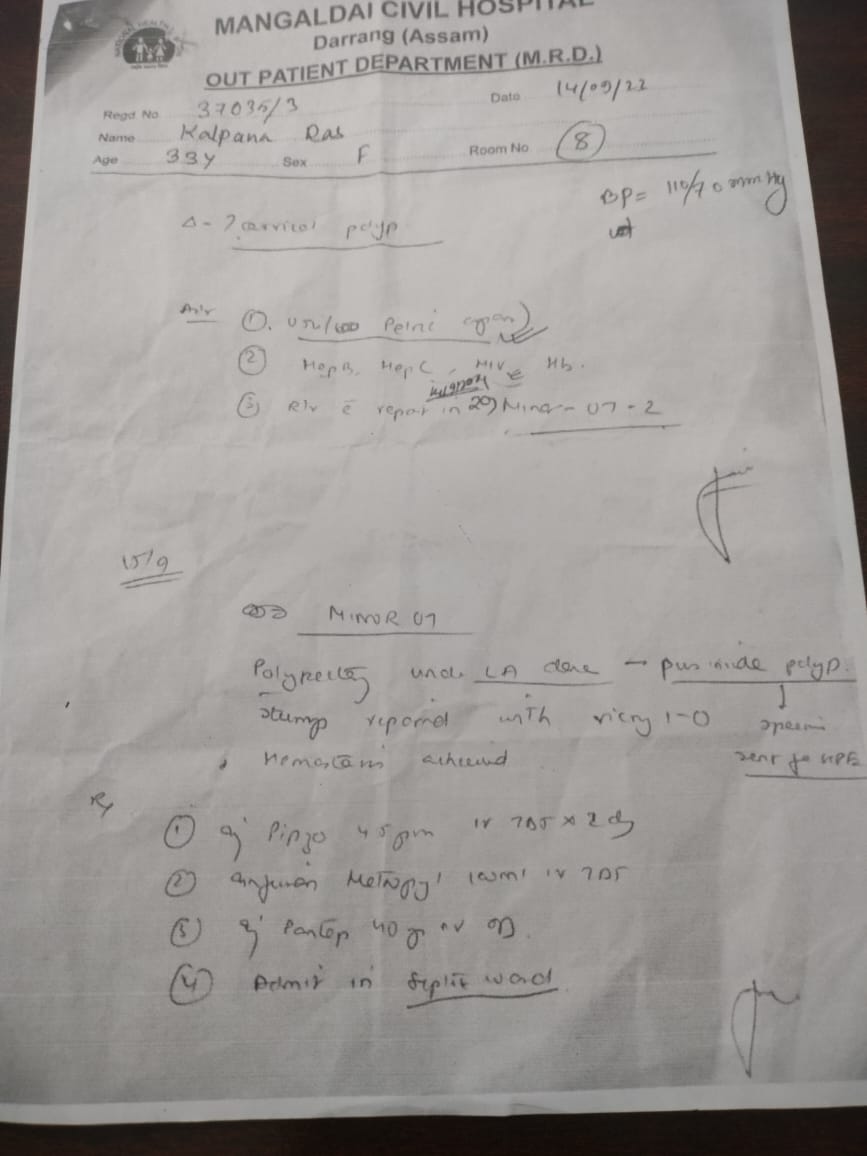 MANGALDAI CIVIL HOSPITAL
Darrang (Assam)
OUT PATIENT DEPARTMENT (M.R.D.)
Regd. No. 37035/3 Date 14/09/22
Name Kalpana Das
Age 33y Sex F Room No 8
BP = 110/70 mmHg
Δ - ? cervical polyp
①. Pelvic
② Hep B, Hep C, HIV Hb.
③ R/v c̄ report in Minor - OT - 2
15/9
MINOR OT
Polypectomy under LA done → pus inside polyp.
stump repaired with vicryl 1-0
Hemostasis achieved sent for HPE
Rx
① Inj Pipzo 4.5 gm IV TDS x 2 d
② Metrogyl 100ml IV TDS
③ Inj Pantop 40 IV OD.
④ Admit in Septic ward